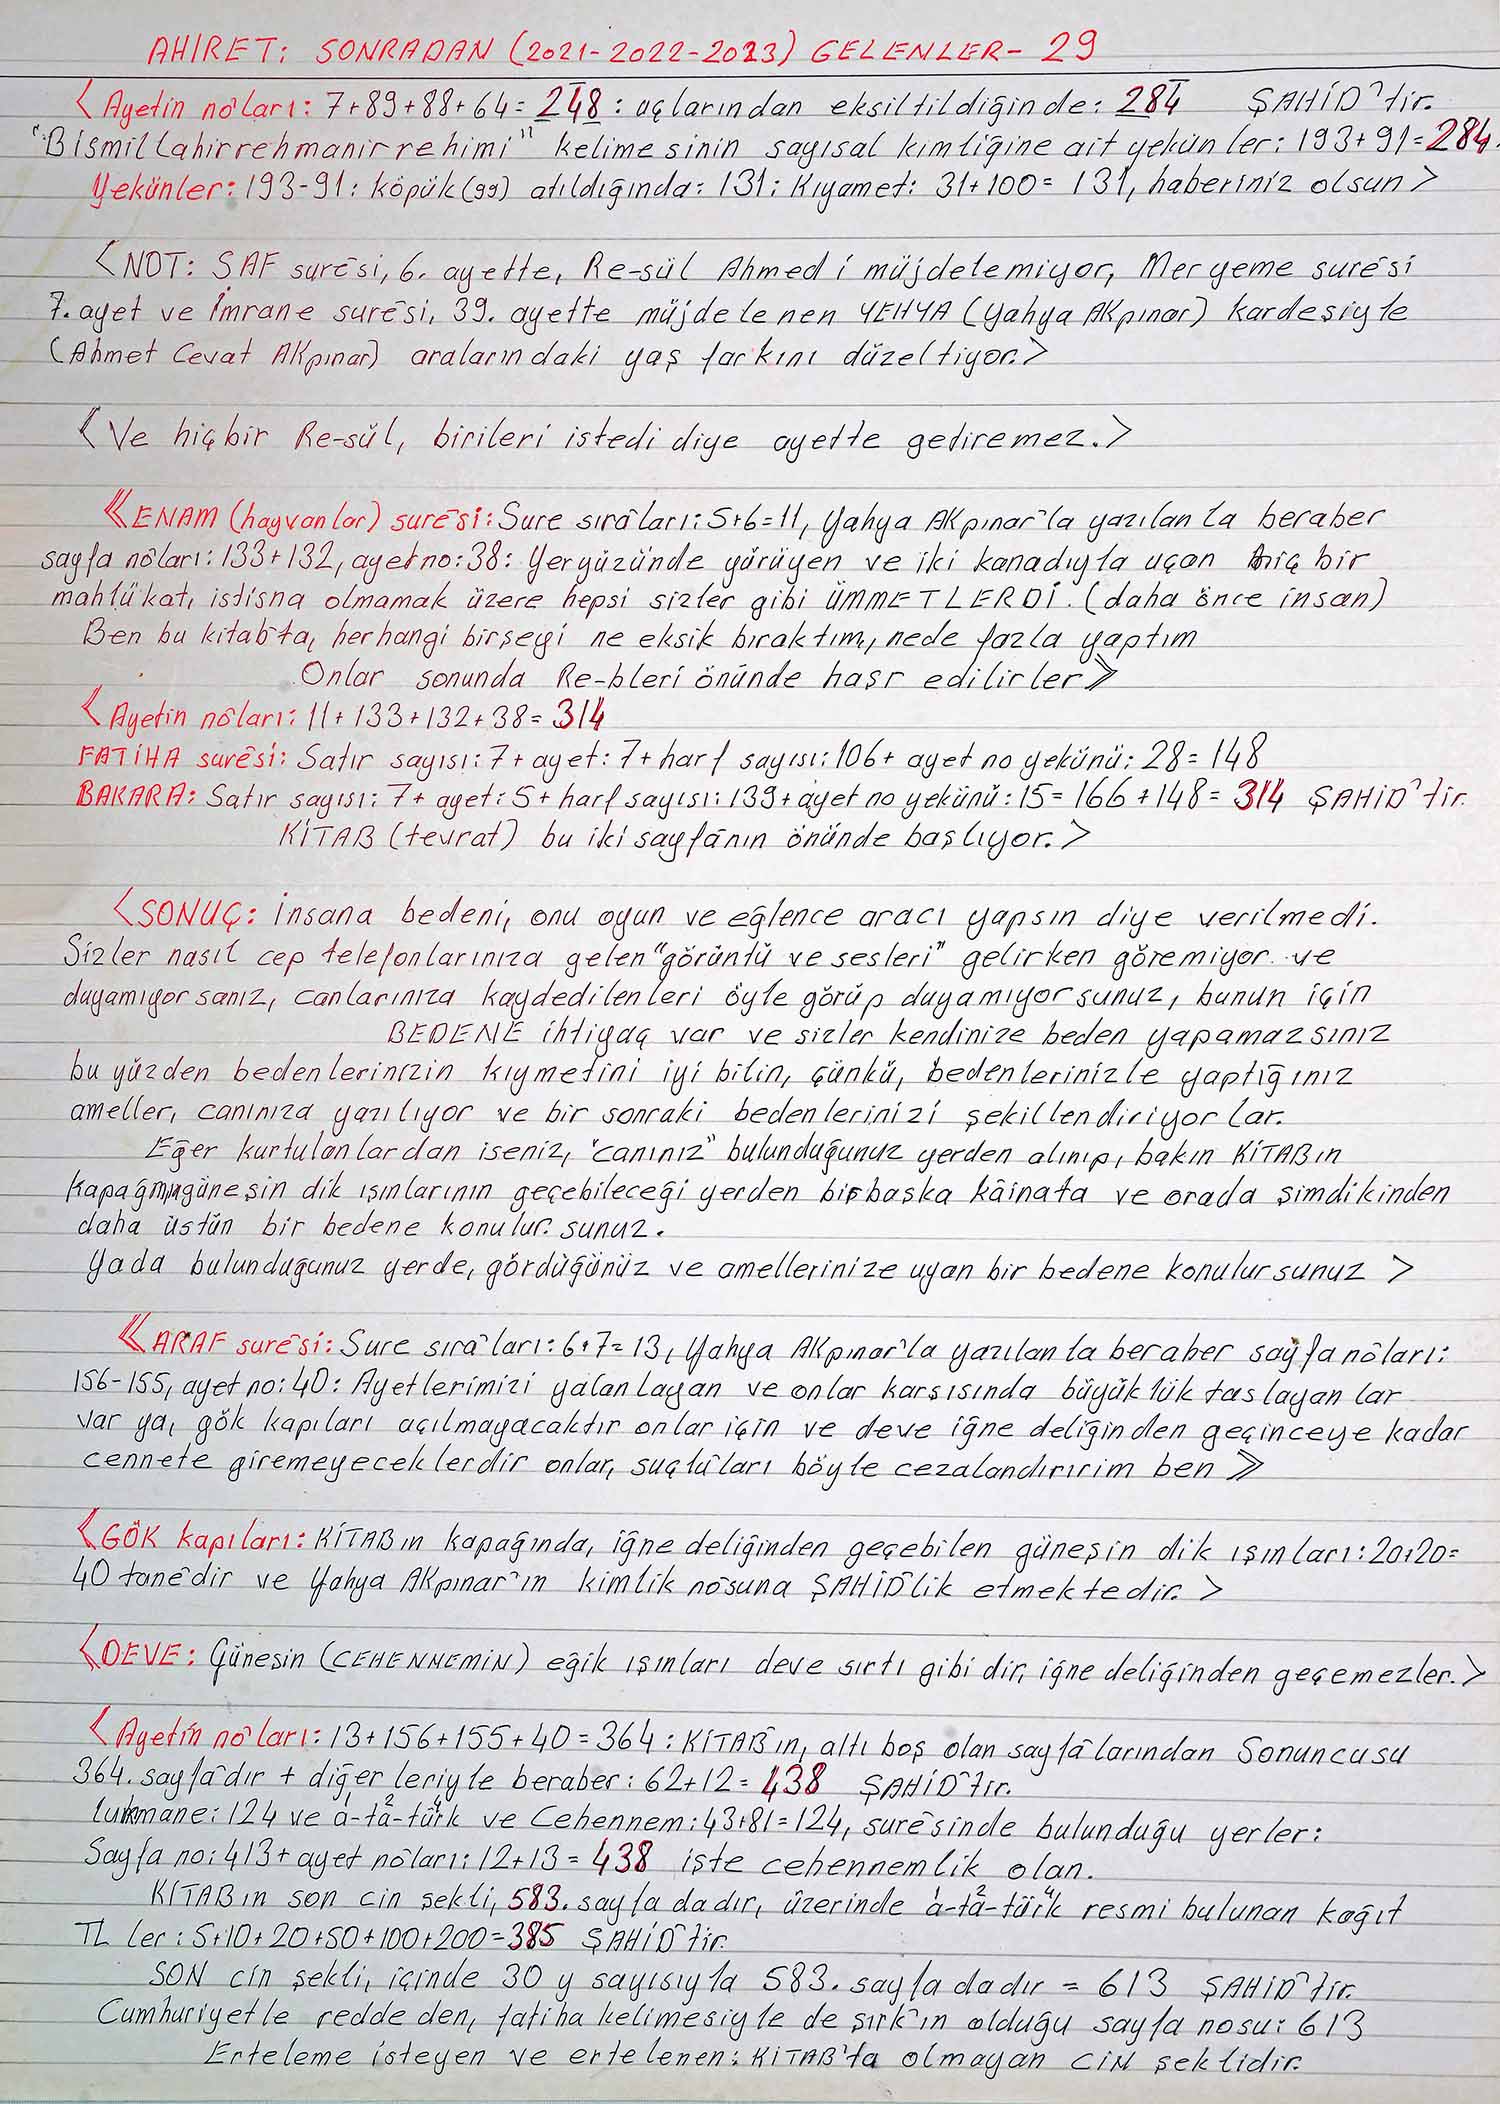 AHİRET: SONRADAN (2021-2022-2023) GELENLER- 29
<Ayetin nôları: 7+89+88+64= 248 : uçlarından eksiltildiğinde: 284 ŞAHİD^tir.
"Bismillahirrehmanirrehimi" kelimesinin sayısal kimliğine ait yekünler: 193+91=284.
Yekünler: 193-91: köpük(99) atıldığında: 131: Kıyamet: 31+100= 131, haberiniz olsun>
<NOT: SAF surêsi, 6. ayette, Re-sül Ahmed i müjdelemiyor, Meryeme surêsi
7. ayet ve İmrane surêsi, 39. ayette müjdelenen YEHYA (Yahya AKpınar) kardeşiyle
(Ahmet Cevat AKpınar) aralarındaki yaş farkını düzeltiyor.>
<Ve hiçbir Re-sül, birileri istedi diye ayette getiremez.>
《ENAM (hayvanlar) surêsi: Sure sırâları: 5+6=11, Yahya AKpınar^la yazılanla beraber
sayfa nôları: 133+132, ayet no: 38: Yeryüzünde yürüyen ve iki kanadıyla uçan hiç bir
mahlûkat, istisna olmamak üzere hepsi sizler gibi ÜMMETLERDİ. (daha önce insan)
Ben bu kitab^ta, herhangi birşeyi ne eksik bıraktım, nede fazla yaptım
Onlar sonunda Re-bleri önünde haşr edilirler》
<Ayetin nôları: 11+133+132+38= 314
FATİHA surêsi: Satır sayısı: 7+ayet: 7+harf sayısı: 106+ ayet no yekünü: 28= 148
BAKARA: Satır sayısı: 7+ ayet: 5+harf sayısı: 139+ayet no yekünü: 15= 166+148= 314 ŞAHİD^tir.
KİTAB (tevrat) bu iki sayfânın önünde başlıyor.>
<SONUÇ: İnsana bedeni, onu oyun ve eğlence aracı yapsın diye verilmedi.
Sizler nasıl cep telefonlarınıza gelen "görüntü ve sesleri" gelirken göremiyor ve
duyamıyorsanız, canlarınıza kaydedilenleri öyle görüp duyamıyorsunuz, bunun için
BEDENE ihtiyaç var ve sizler kendinize beden yapamazsınız
bu yüzden bedenlerinizin kıymetini iyi bilin, çünkü, bedenlerinizle yaptığınız
ameller, canınıza yazılıyor ve bir sonraki bedenlerinizi şekillendiriyorlar.
Eğer kurtulanlardan iseniz, "canınız" bulunduğunuz yerden alınıp, bakın KİTABın
güneşin dik ışınlarının geçebileceği yerden bir başka kâinata ve orada şimdikinden
daha üstün bir bedene konulur.sunuz.
Yada bulunduğunuz yerde, gördüğünüz ve amellerinize uyan bir bedene konulursunuz >
《ARAF surêsi: Sure sırâları: 6+7=13, Yahya AKpınar^la yazılanla beraber sayfa nôları:
156-155, ayet no: 40: Ayetlerimizi yalanlayan ve onlar karşısında büyüklük taslayanlar
var ya, gök kapıları açılmayacaktır onlar için ve deve iğne deliğinden geçinceye kadar
cennete giremeyeceklerdir onlar, suçlûları böyle cezalandırırım ben》
<GÖK kapıları: KİTABın kapağında, iğne deliğinden geçebilen güneşin dik ışınları: 20+20=
40 tanêdir ve Yahya AKpınar^ın kimlik nôsuna ŞAHİD^lik etmektedir. >
<DEVE: Güneşin (CEHENNEMİN) eğik ışınları deve sırtı gibidir, iğne deliğinden geçemezler.>
<Ayetin nôları: 13+156+155+40=364 : KİTAB^ın, altı boş olan sayfâlarından Sonuncusu
364. sayfadır + diğerleriyle beraber: 62+12= 438 ŞAHİD^tir.
Lukmane: 124 ve a-ta-türk ve Cehennem: 43+81=124, surêsinde bulunduğu yerler:
Sayfa no: 413+ ayet nôları: 12+13= 438 işte cehennemlik olan.
KİTABın son cin şekli, 583. sayfadadır, üzerinde a-ta-türk resmi bulunan kağıt
TL ler: 5+10+20+50+100+200=385 ŞAHİD^tir.
SON cin şekli, içinde 30 y sayısıyla 583. sayfadadır = 613 ŞAHİD^tir.
Cumhuriyetle reddeden, fatiha kelimesiyle de şirk^ın olduğu sayfa nosu: 613
Erteleme isteyen ve ertelenen: KİTAB^ta olmayan CİN şeklidir.